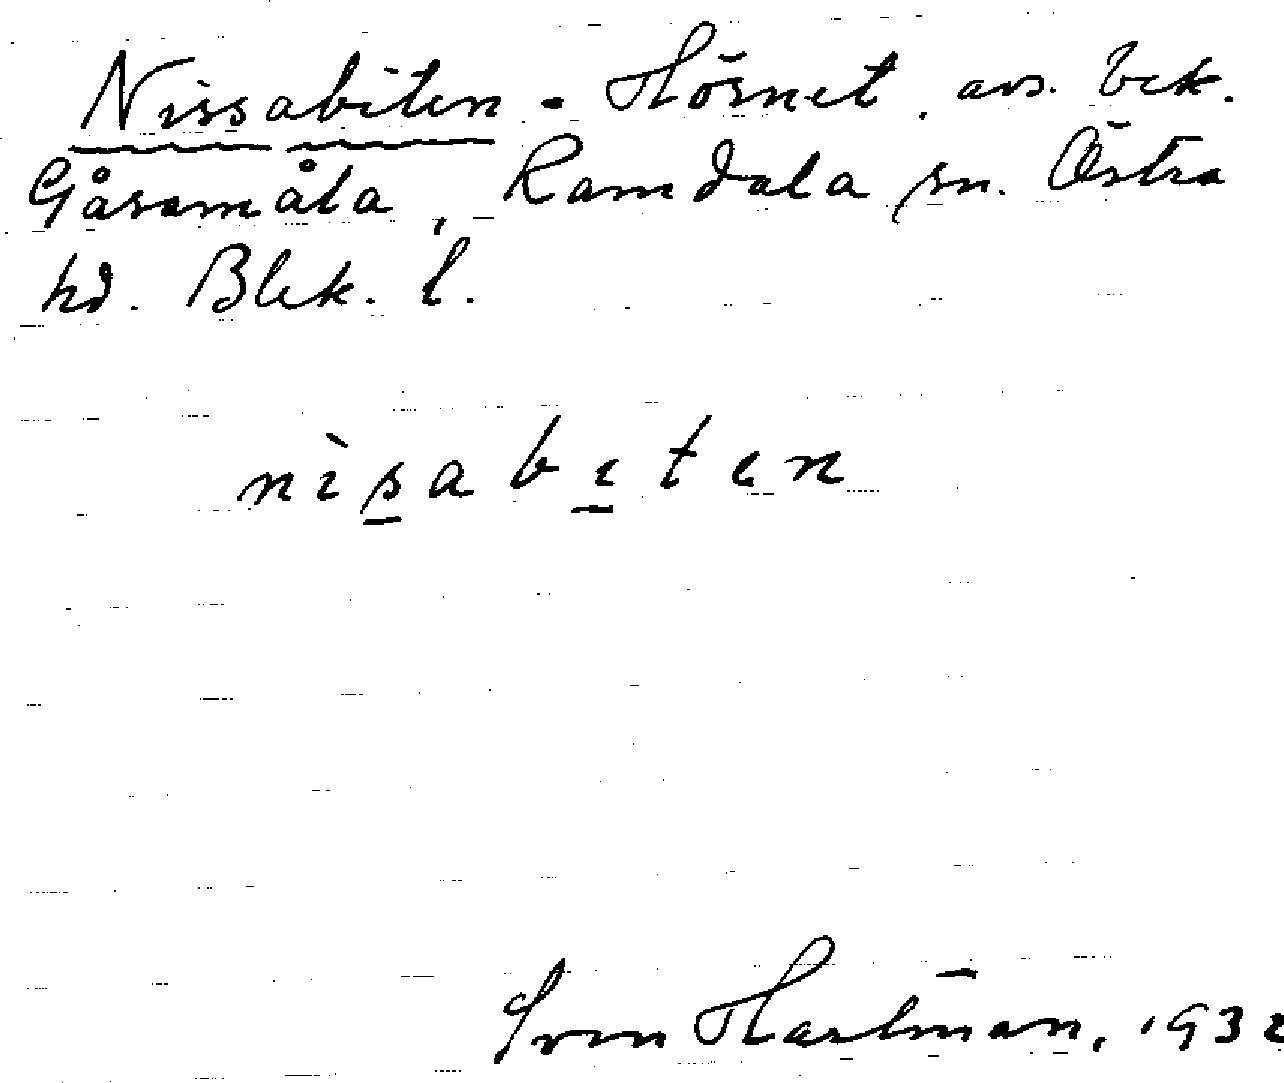 Nissabiten - Hörnet, avs. bek.
Gåsamåla, Ramdala sn. Östra
hd. Blek. l.
nìsabıten
Sven Hartman, 1932